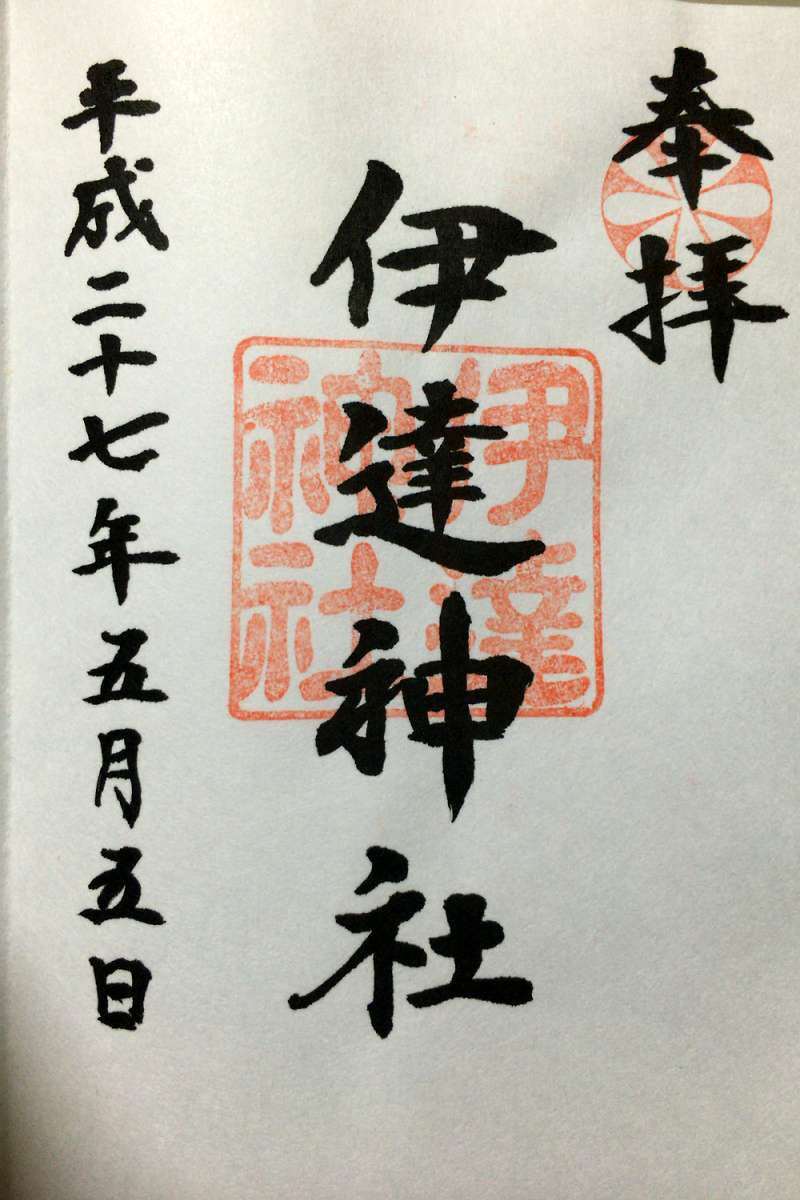 奉拝
伊達神社
伊達神社
平成二十七年五月五日